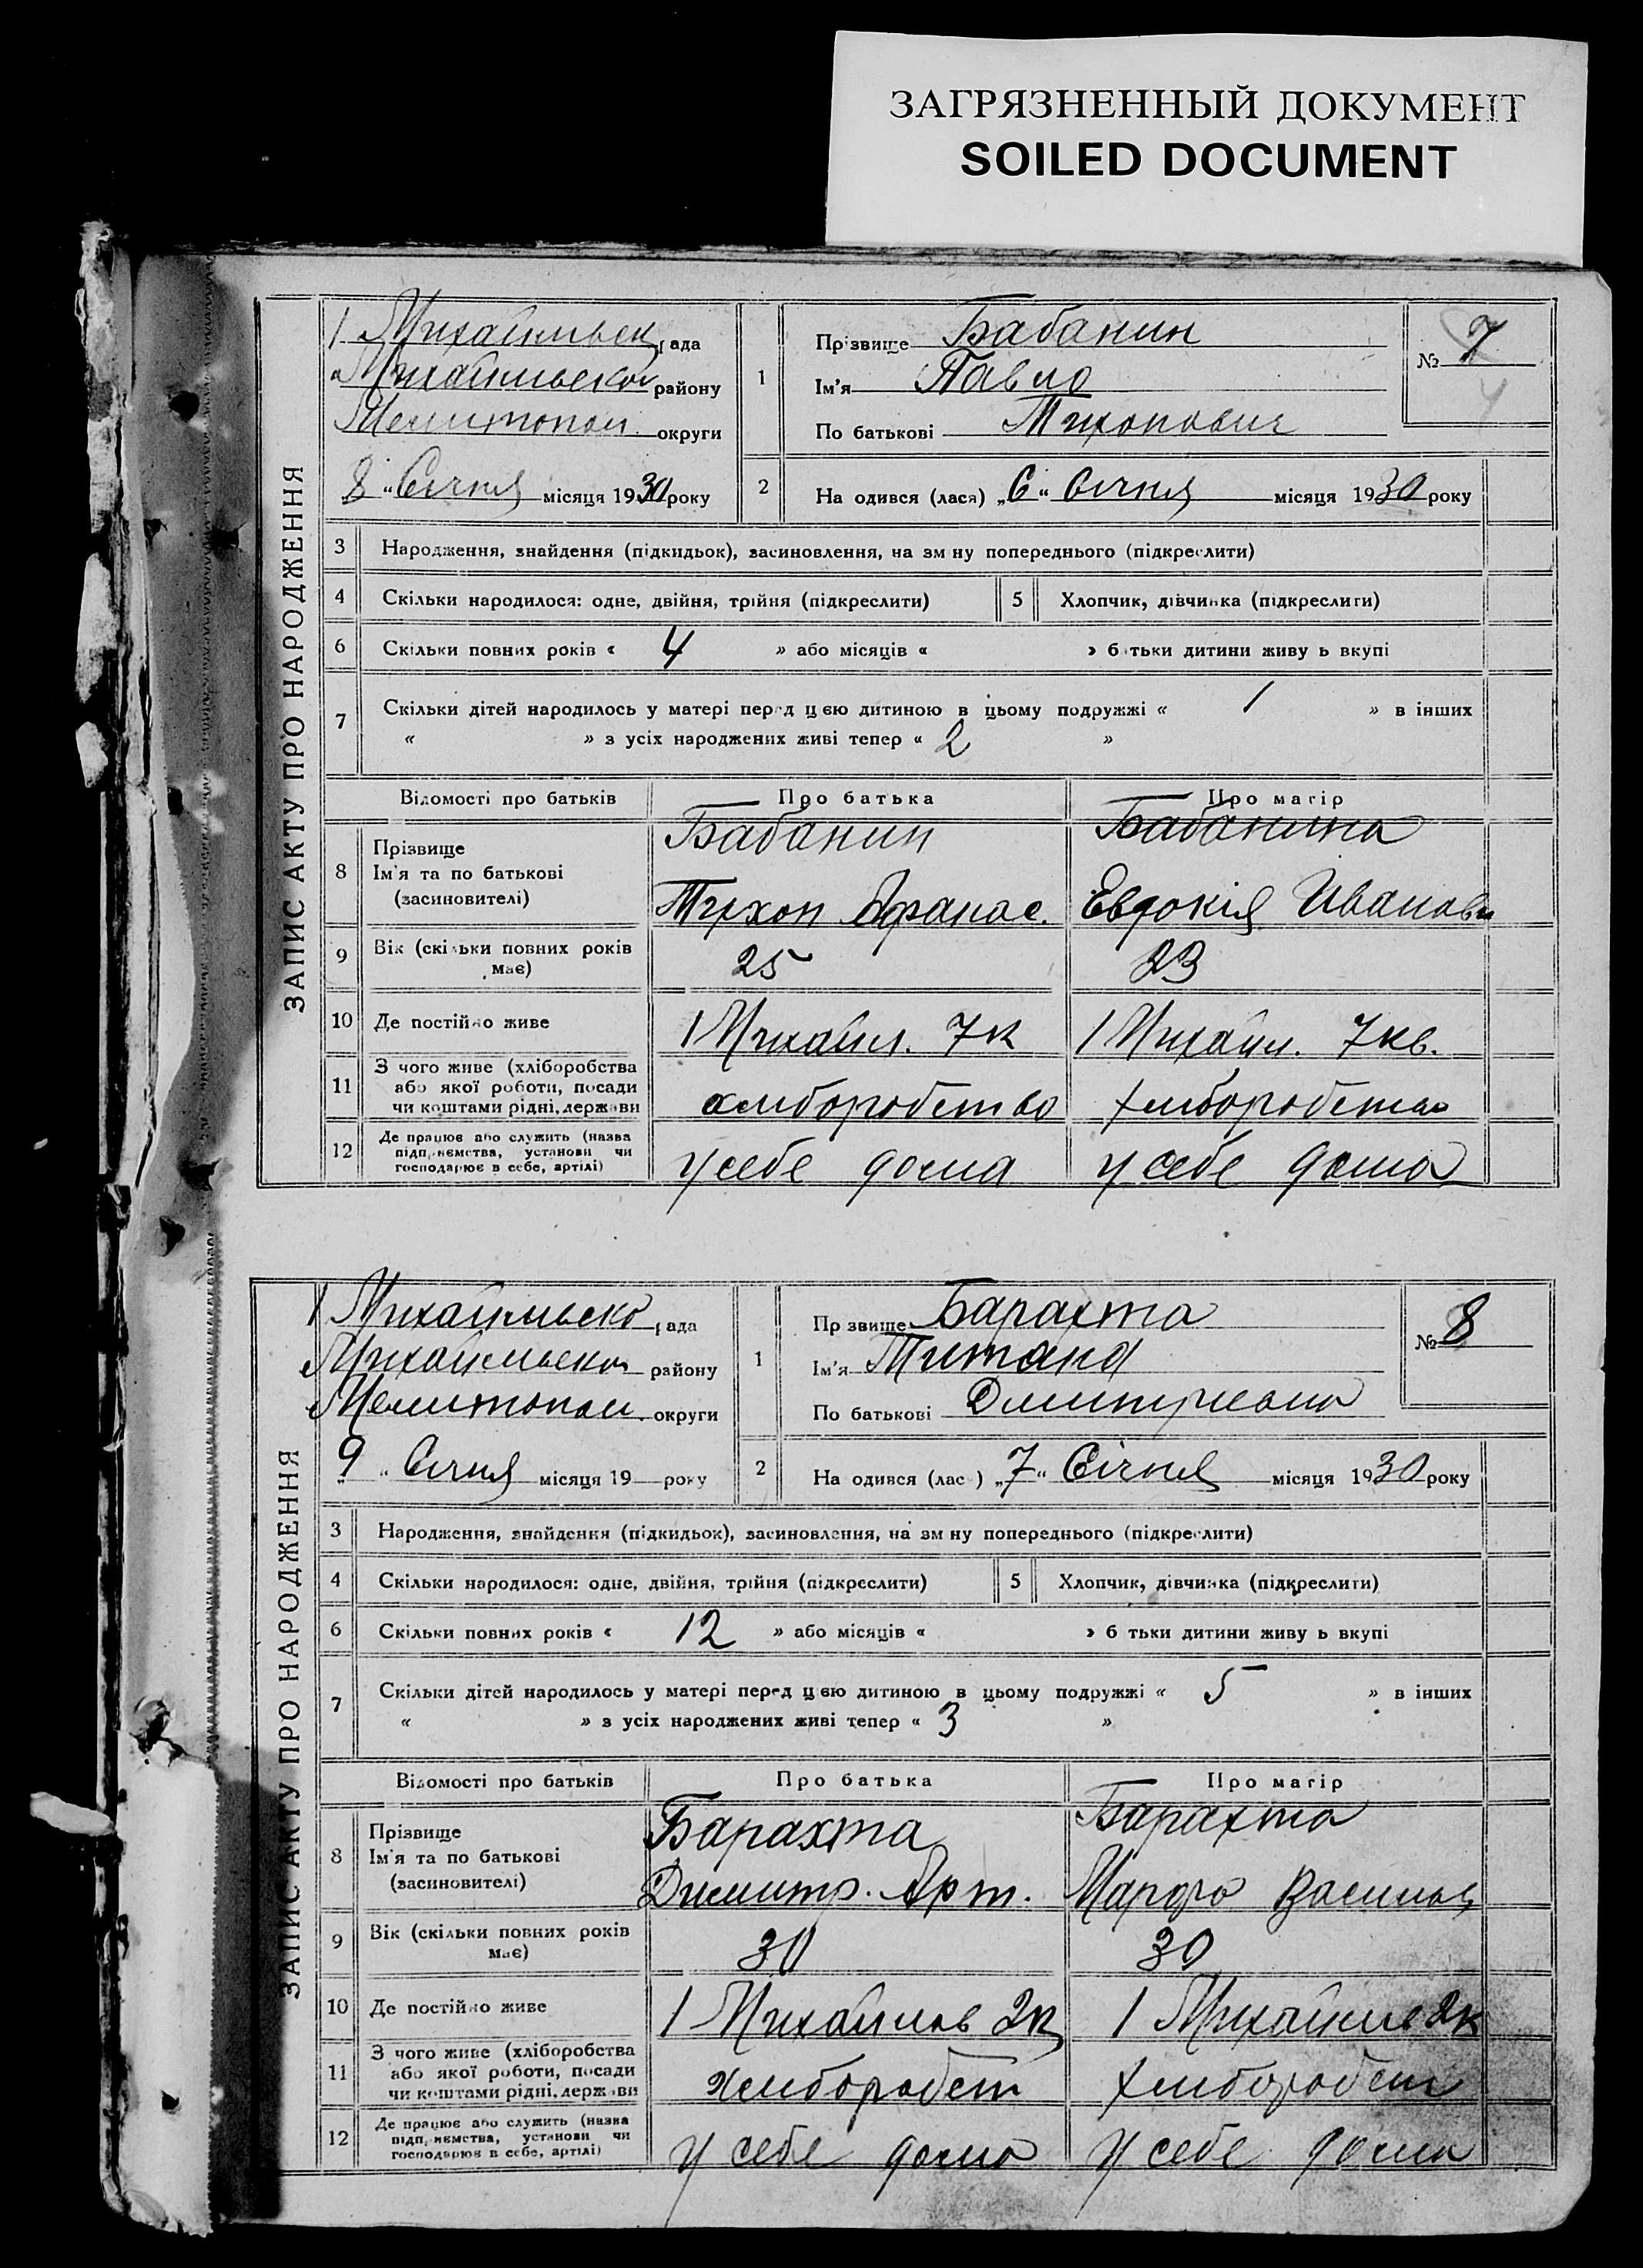 ЗАГРЯЗНЕННЫЙ ДОКУМЕНТ
SOILED DOCUMENT
ЗАПИС АКТУ ПРО НАРОДЖЕННЯ
1 Михайльськ рада
Михайльської району
Мелитопол. округи
8 "Січня місяця 1930 року
1
Прізвище Бабанин
Ім'я Павло
По батькові Тихонович
№ 7
4
2 На одився (лася) „6" Січня місяця 1930 року
3 Народження, знайдення (підкидьок), засиновлення, на зм ну попереднього (підкреслити)
4 Скільки народилося: одне, двійня, трійня (підкреслити) 5 Хлопчик, дівчинка (підкреслити)
6 Скільки повних років « 4 » або місяців « » б тьки дитини живу ь вкупі
7 Скільки дітей народилось у матері перед цією дитиною в цьому подружжі « 1 » в інших
« » з усіх народжених живі тепер « 2 »
Відомості про батьків Про батька Про матір
8 Прізвище
Ім'я та по батькові
(засиновителі)
Бабанин
Тихон Афанас.
Бабанина
Евдокія Ивановн
9 Вік (скільки повних років має) 25 23
10 Де постійно живе 1 Михайл. 7к 1 Михайл. 7кв.
11 З чого живе (хліборобства
або якої роботи, посади
чи коштами рідні, держави
хлиборобство хлиборобство
12 Де працює або служить (назва
підприємства, установи чи
господарює в себе, артілі)
у себе дома у себе дома
ЗАПИС АКТУ ПРО НАРОДЖЕННЯ
1 Михайльсько рада
Михайльської району
Мелитопол. округи
„9" Січня місяця 19 року
1
Пр звище Барахта
Ім'я Титана
По батькові Дмитриевна
№ 8
2 На одився (лас ) „7" Січня місяця 1930 року
3 Народження, знайдення (підкидьок), засиновлення, на зм ну попереднього (підкреслити)
4 Скільки народилося: одне, двійня, трійня (підкреслити) 5 Хлопчик, дівчинка (підкреслити)
6 Скільки повних років « 12 » або місяців « » б тьки дитини живу ь вкупі
7 Скільки дітей народилось у матері перед цією дитиною в цьому подружжі « 5 » в інших
« » з усіх народжених живі тепер « 3 »
Відомості про батьків Про батька Про матір
8 Прізвище
Ім'я та по батькові
(засиновителі)
Барахта
Димитр. Арт.
Барахта
Марфа Васильв
9 Вік (скільки повних років має) 30 30
10 Де постійно живе 1 Михайлов 2к 1 Михайлов 2к
11 З чого живе (хліборобства
або якої роботи, посади
чи коштами рідні, держави
хлиборобст хлиборобст
12 Де працює або служить (назва
підприємства, установи чи
господарює в себе, артілі)
у себе дома у себе дома